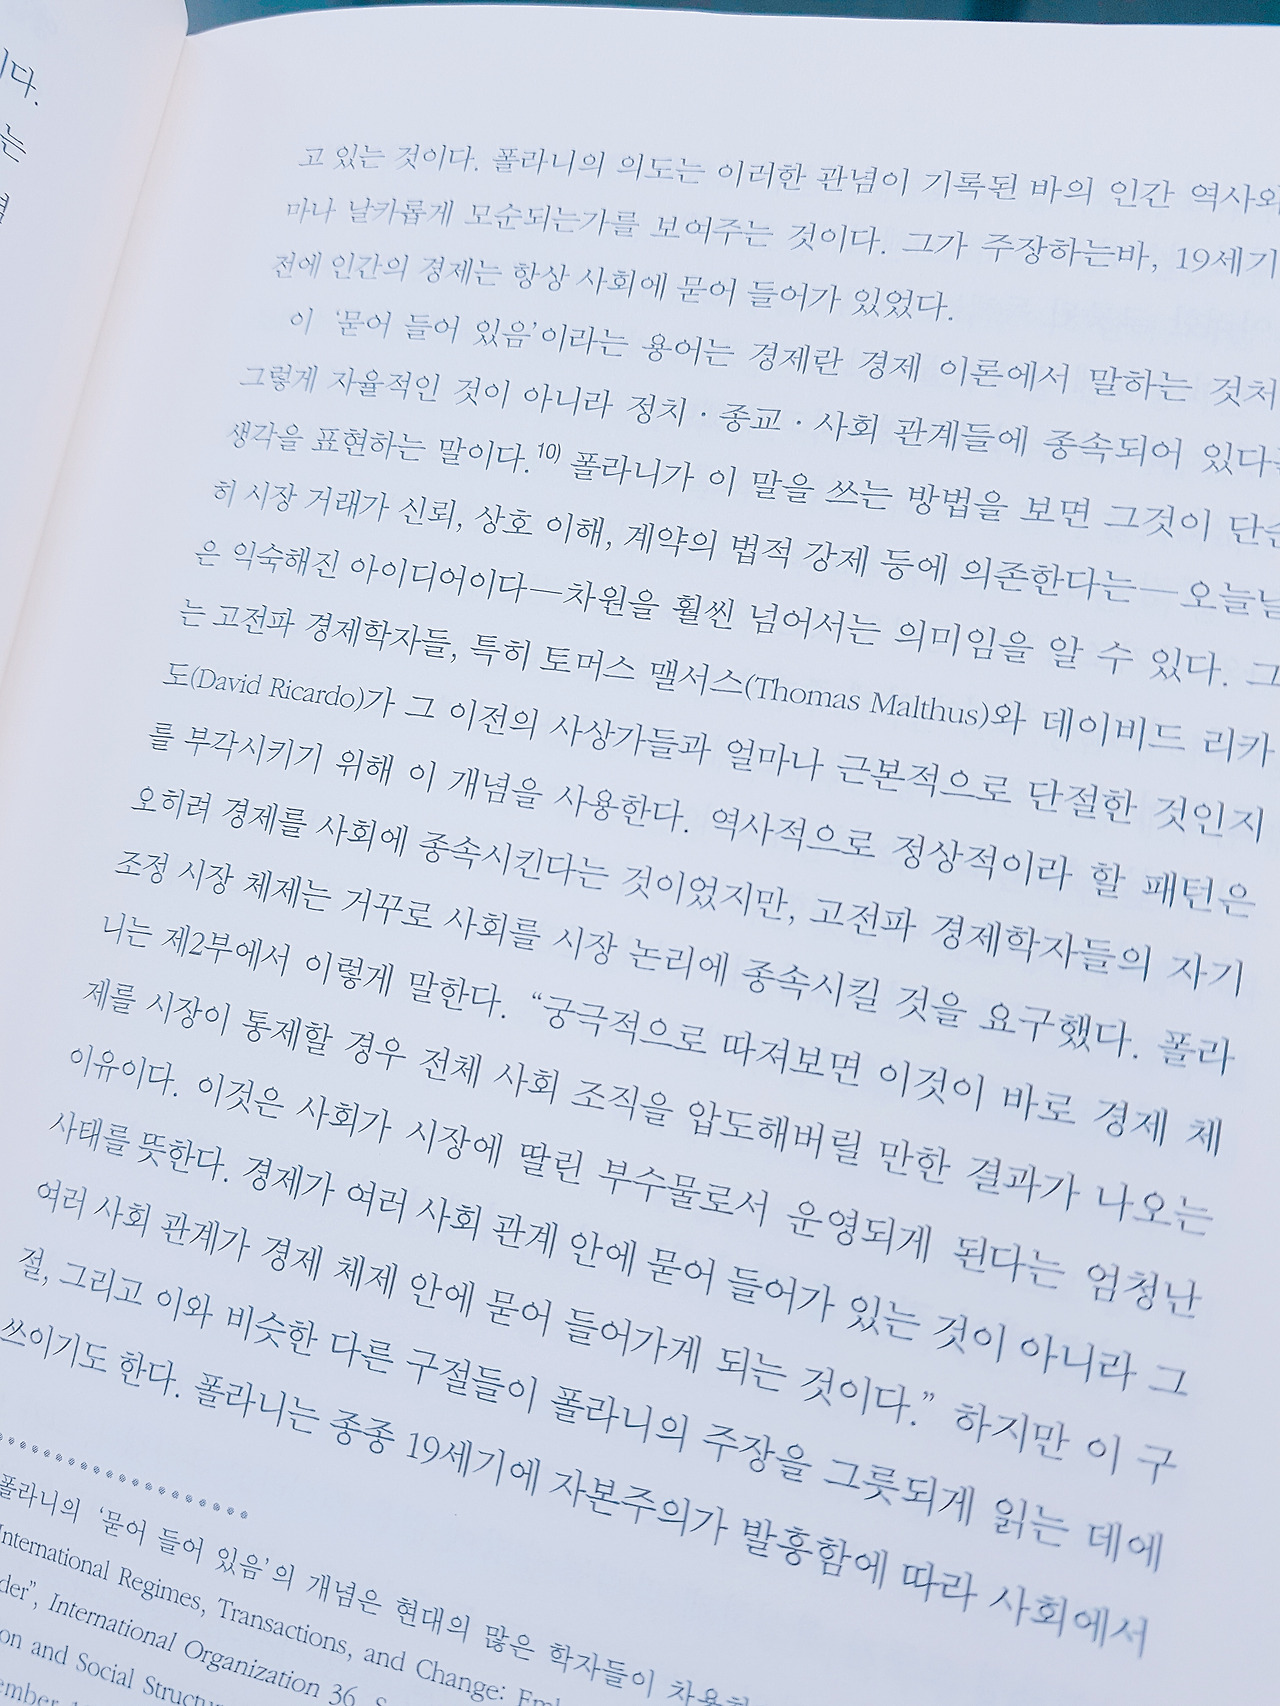 이다.
는
고 있는 것이다. 폴라니의 의도는 이러한 관념이 기록된 바의 인간 역사와
마나 날카롭게 모순되는가를 보여주는 것이다. 그가 주장하는바, 19세기
전에 인간의 경제는 항상 사회에 묻어 들어가 있었다.
이 ‘묻어 들어 있음’이라는 용어는 경제란 경제 이론에서 말하는 것처
그렇게 자율적인 것이 아니라 정치·종교·사회 관계들에 종속되어 있다
생각을 표현하는 말이다.10) 폴라니가 이 말을 쓰는 방법을 보면 그것이 단순
히 시장 거래가 신뢰, 상호 이해, 계약의 법적 강제 등에 의존한다는—오늘날
은 익숙해진 아이디어이다—차원을 훨씬 넘어서는 의미임을 알 수 있다. 그
는 고전파 경제학자들, 특히 토머스 맬서스(Thomas Malthus)와 데이비드 리카
도(David Ricardo)가 그 이전의 사상가들과 얼마나 근본적으로 단절한 것인지
를 부각시키기 위해 이 개념을 사용한다. 역사적으로 정상적이라 할 패턴은
오히려 경제를 사회에 종속시킨다는 것이었지만, 고전파 경제학자들의 자기
조정 시장 체제는 거꾸로 사회를 시장 논리에 종속시킬 것을 요구했다. 폴라
니는 제2부에서 이렇게 말한다. “궁극적으로 따져보면 이것이 바로 경제 체
제를 시장이 통제할 경우 전체 사회 조직을 압도해버릴 만한 결과가 나오는
이유이다. 이것은 사회가 시장에 딸린 부수물로서 운영되게 된다는 엄청난
사태를 뜻한다. 경제가 여러 사회 관계 안에 묻어 들어가 있는 것이 아니라 그
여러 사회 관계가 경제 체제 안에 묻어 들어가게 되는 것이다.” 하지만 이 구
절, 그리고 이와 비슷한 다른 구절들이 폴라니의 주장을 그릇되게 읽는 데에
쓰이기도 한다. 폴라니는 종종 19세기에 자본주의가 발흥함에 따라 사회에서
폴라니의 ‘묻어 들어 있음’의 개념은 현대의 많은 학자들이
International Regimes, Transactions, and Change:
der”, International Organization 36,
on and Social